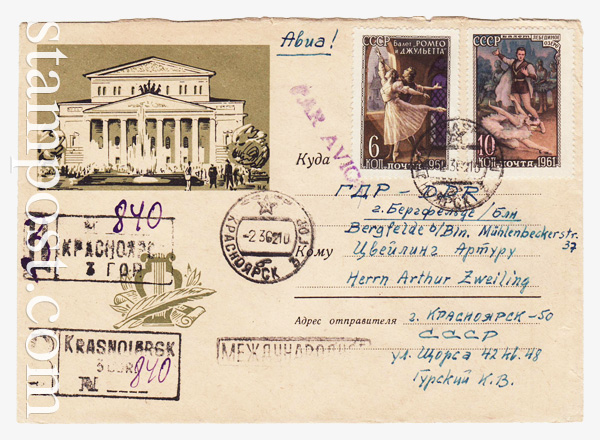 stampost.com
Авиа!
СССР
Балет „РОМЕО
и ДЖУЛЬЕТТА“
6
КОП.
ПОЧТА
СССР
ЛЕБЕДИНОЕ
ОЗЕРО
10
КОП.
ПОЧТА 1961
PAR AVION
Куда
ГДР - DDR
г. Бергфельде/Блн
Bergfelde b/Bln. Mühlenbeckerstr.
37
Кому
Цвейлинг Артуру
Herrn Arthur Zweiling
КРАСНОЯРСК
-2 3 62 10
840
КРАСНОЯРС
3 ГОР
KRASNOIARSK
840
МЕЖДУНАРОДНОЕ
Адрес отправителя
г. КРАСНОЯРСК-50
СССР
ул. Щорса 42 кв. 48
Гурский К. В.